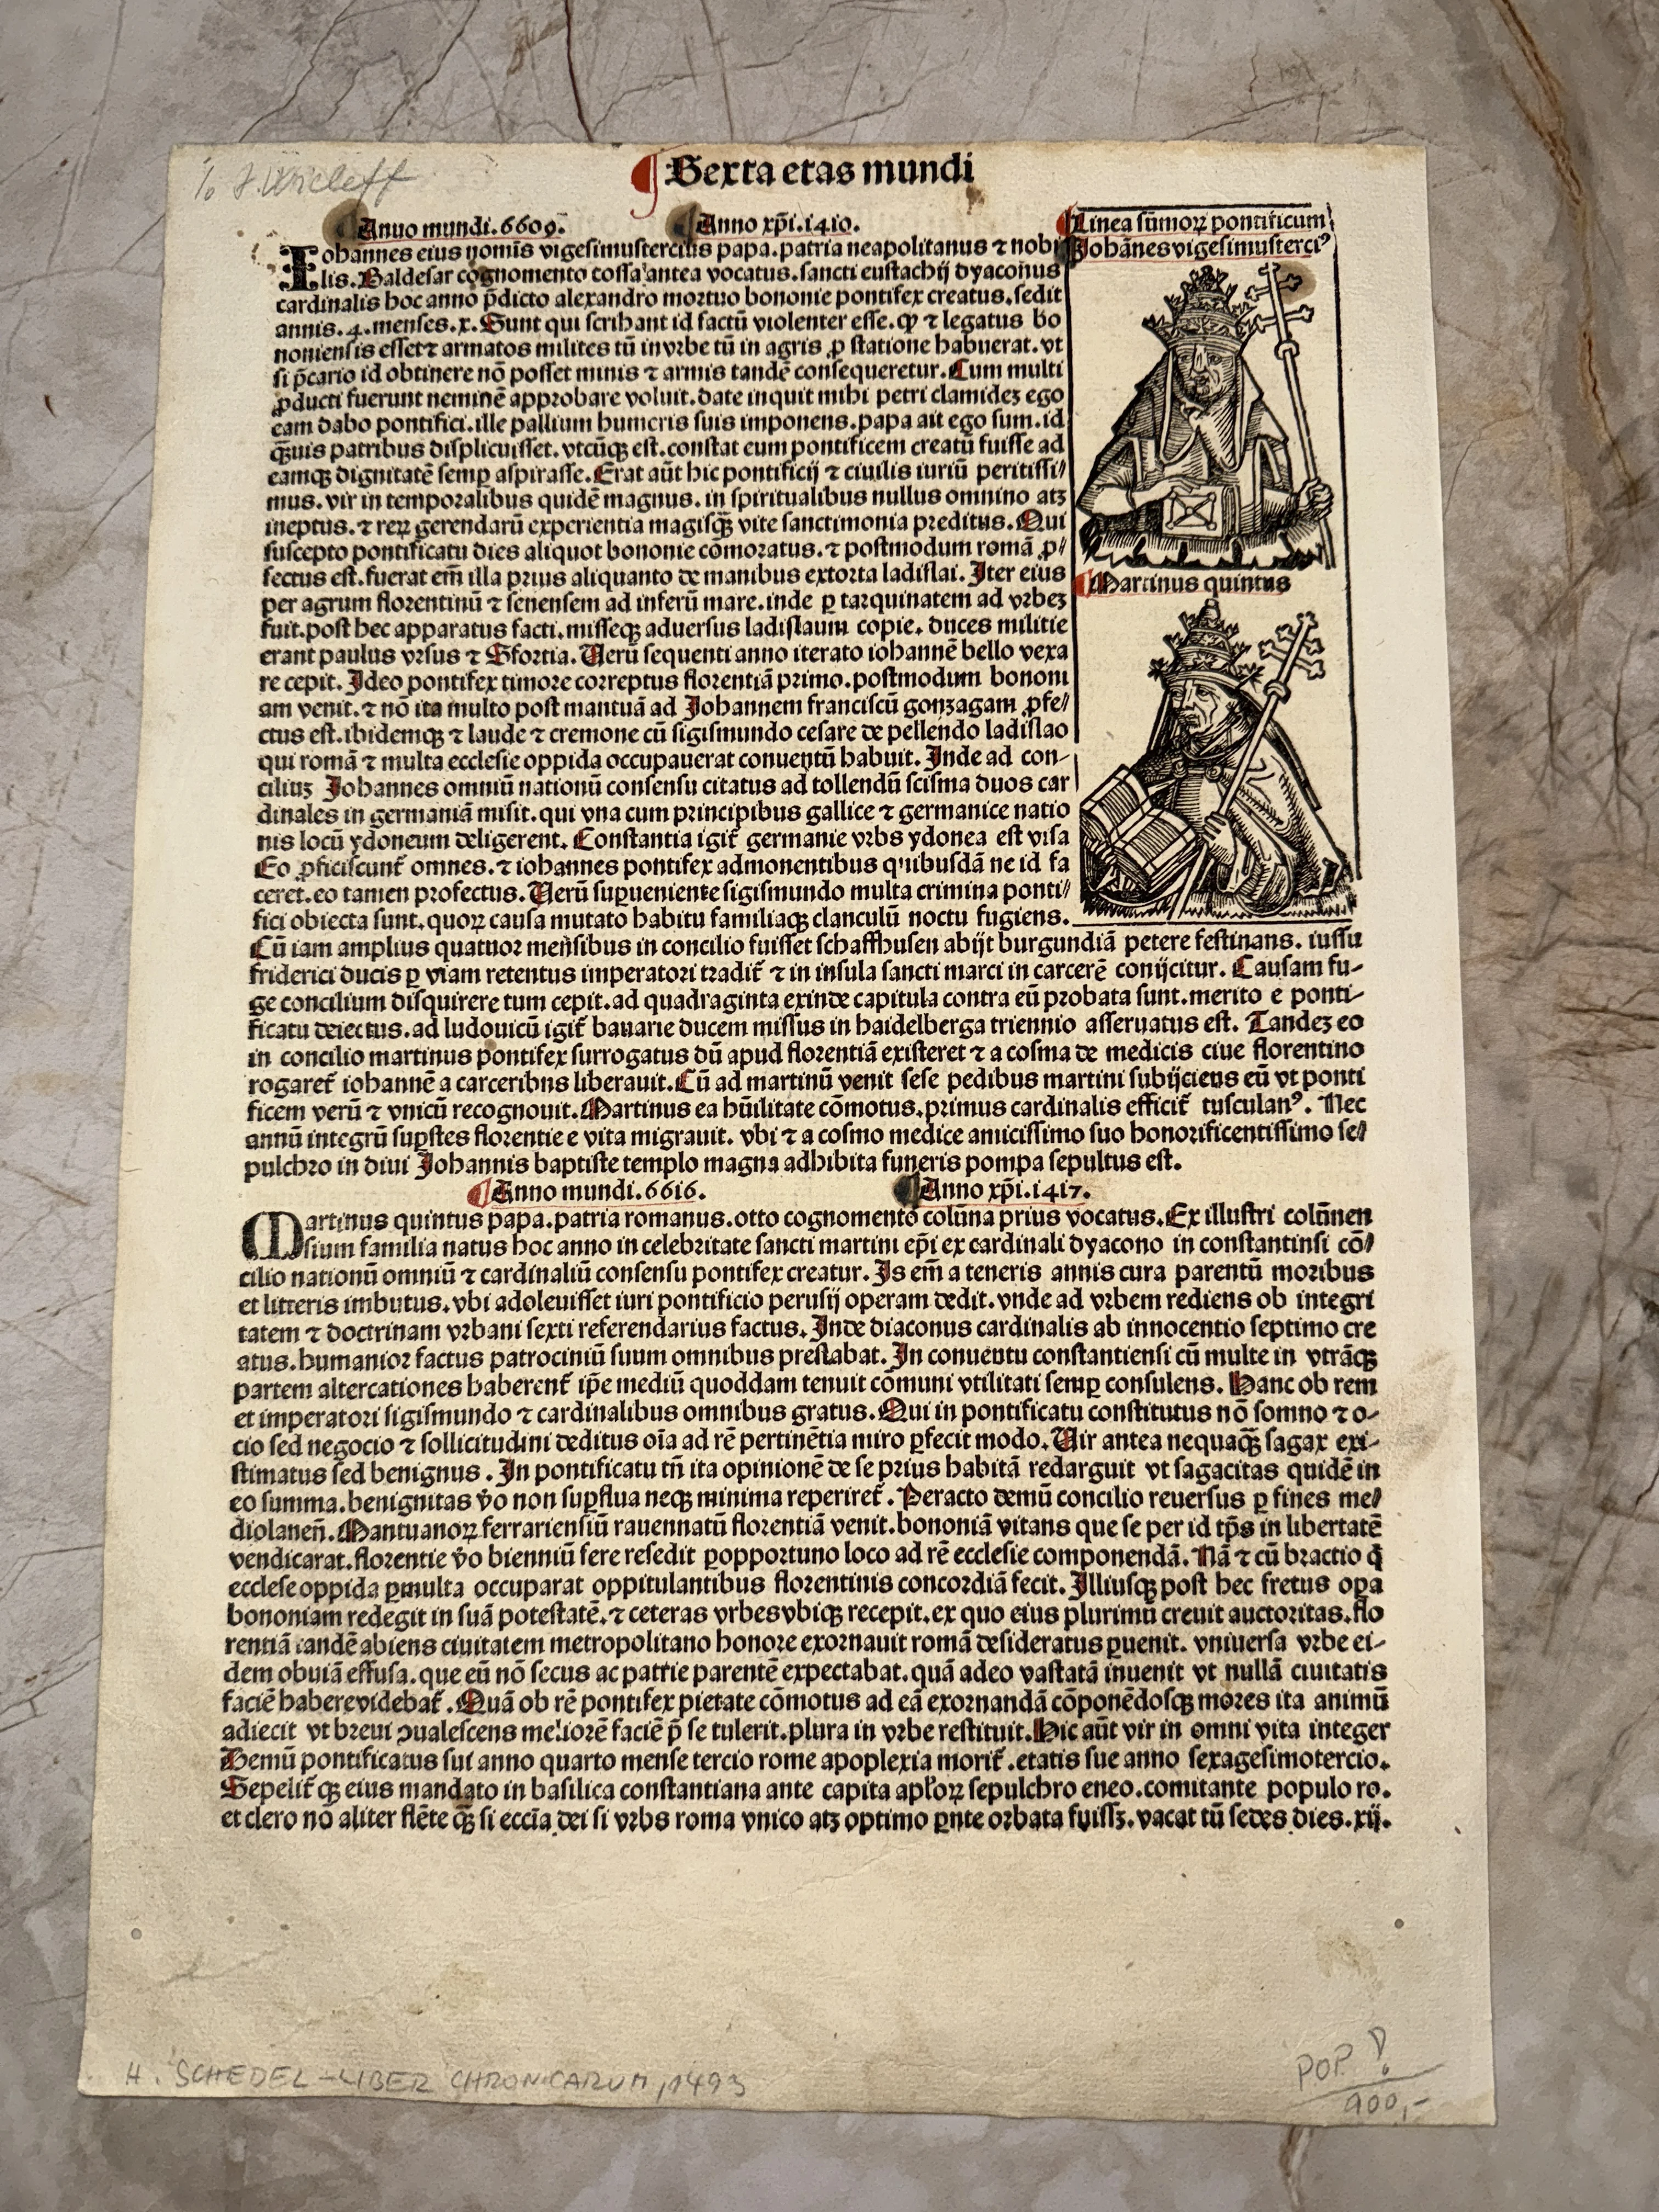 ¶ Sexta etas mundi
Anno mundi.6609. Anno xp̄i.1410.
Iohannes eius nomīs vigesimustercius papa.patria neapolitanus ⁊ nobi
lis.Baldesar cognomento cossa antea vocatus.sancti eustachij dyaconus
cardinalis hoc anno p̄dicto alexandro mortuo bononie pontifex creatus.sedit
annis.4.menses.x.Sunt qui scribant id factū violenter esse.ꝙ ⁊ legatus bo
noniensis esset⁊ armatos milites tū in vrbe tū in agris ꝓ statione habuerat.vt
si p̄cario id obtinere nō posset minis ⁊ armis tandē consequeretur.Cum multi
ꝓducti fuerunt neminē approbare voluit.date inquit mihi petri clamideꝫ ego
eam dabo pontifici.ille pallium humeris suis imponens.papa ait ego sum.id
ꝙ̄uis patribus displicuisset.vtcūqꝫ est.constat eum pontificem creatū fuisse ad
eamqꝫ dignitatē semꝑ aspirasse.Erat aūt hic pontificij ⁊ ciuilis iuriū peritissi/
mus.vir in temporalibus quidē magnus.in spiritualibus nullus omnino atꝫ
ineptus.⁊ reꝝ gerendarū experientia magisqꝫ̄ vite sanctimonia preditus.Qui
suscepto pontificatu dies aliquot bononie cōmoratus.⁊ postmodum romā ꝓ/
fectus est.fuerat em̄ illa prius aliquanto de manibus extorta ladislai.Iter eius
per agrum florentinū ⁊ senensem ad inferū mare.inde ꝑ tarquinatem ad vrbeꝫ
fuit.post hec apparatus facti.misseqꝫ aduersus ladislaum copie.duces militie
erant paulus vrsus ⁊ Sfortia.Verū sequenti anno iterato iohannē bello vexa
re cepit.Ideo pontifex timore correptus florentiā primo.postmodum bononi
am venit.⁊ nō ita multo post mantuā ad Johannem franciscū gonzagam ꝓfe/
ctus est.ibidemqꝫ ⁊ laude ⁊ cremone cū sigismundo cesare de pellendo ladislao
qui romā ⁊ multa ecclesie oppida occupauerat conuentū habuit.Inde ad con-
ciliuꝫ Johannes omniū nationū consensu citatus ad tollendū scisma duos car
dinales in germaniā misit.qui vna cum principibus gallice ⁊ germanice natio
nis locū ydoneum deligerent.Constantia igit̄ germanie vrbs ydonea est visa
Eo ꝓficiscunt̄ omnes.⁊ iohannes pontifex admonentibus quibusdā ne id fa
ceret.eo tamen profectus.Verū suꝑueniente sigismundo multa crimina ponti/
fici obiecta sunt.quoꝝ causa mutato habitu familiaqꝫ clanculū noctu fugiens.
Cū iam amplius quatuor mensibus in concilio fuisset schaffhusen abijt burgundiā petere festinans.iussu
friderici ducis ꝑ viam retentus imperatori tradit̄ ⁊ in insula sancti marci in carcerē conijcitur.Causam fu-
ge concilium disquirere tum cepit.ad quadraginta exinde capitula contra eū probata sunt.merito e ponti-
ficatu deiectus.ad ludouicū igit̄ bauarie ducem missus in haidelberga triennio asseruatus est.Tandeꝫ eo
in concilio martinus pontifex surrogatus dū apud florentiā existeret ⁊ a cosma de medicis ciue florentino
rogaret̄ iohannē a carceribus liberauit.Cū ad martinū venit sese pedibus martini subijciens eū vt ponti
ficem verū ⁊ vnicū recognouit.Martinus ea hūilitate cōmotus.primus cardinalis efficit̄ tusculanꝰ.Nec
annū integrū suꝑstes florentie e vita migrauit.vbi ⁊ a cosmo medice amicissimo suo honorificentissimo se/
pulchro in diui Johannis baptiste templo magna adhibita funeris pompa sepultus est.
Anno mundi.6616. Anno xp̄i.1417.
Martinus quintus papa.patria romanus.otto cognomento colūna prius vocatus.Ex illustri colūnen
sium familia natus hoc anno in celebritate sancti martini ep̄i ex cardinali dyacono in constantinsi cō/
cilio nationū omniū ⁊ cardinaliū consensu pontifex creatur.Is em̄ a teneris annis cura parentū moribus
et litteris imbutus.vbi adoleuisset iuri pontificio perusij operam dedit.vnde ad vrbem rediens ob integri
tatem ⁊ doctrinam vrbani sexti referendarius factus.Inde diaconus cardinalis ab innocentio septimo cre
atus.humanior factus patrociniū suum omnibus prestabat.In conuentu constantiensi cū multe in vtrāqꝫ
partem altercationes haberent̄ ip̄e mediū quoddam tenuit cōmuni vtilitati semꝑ consulens.Hanc ob rem
et imperatori sigismundo ⁊ cardinalibus omnibus gratus.Qui in pontificatu constitutus nō somno ⁊ o-
cio sed negocio ⁊ sollicitudini deditus oīa ad rē pertinētia miro ꝑfecit modo.Vir antea nequaqꝫ̄ sagax exi-
stimatus sed benignus.In pontificatu tn̄ ita opinionē de se prius habitā redarguit vt sagacitas quidē in
eo summa.benignitas v̄o non suꝑflua neqꝫ minima reperiret̄.Peracto demū concilio reuersus ꝑ fines me/
diolaneñ.Mantuanoꝝ ferrariensiū rauennatū florentiā venit.bononiā vitans que se per id tp̄s in libertatē
vendicarat.florentie v̄o bienniū fere resedit ꝑopportuno loco ad rē ecclesie componendā.Nā ⁊ cū bractio q̄
ecclese oppida ꝑmulta occuparat oppitulantibus florentinis concordiā fecit.Illiusqꝫ post hec fretus opa
bononiam redegit in suā potestatē.⁊ ceteras vrbes vbiqꝫ recepit.ex quo eius plurimū creuit auctoritas.flo
rentiā tandē abiens ciuitatem metropolitano honore exornauit romā desideratus ꝑuenit.vniuersa vrbe ei-
dem obuiā effusa.que eū nō secus ac patrie parentē expectabat.quā adeo vastatā inuenit vt nullā ciuitatis
faciē habere videbat̄.Quā ob rē pontifex pietate cōmotus ad eā exornandā cōponēdosqꝫ mores ita animū
adiecit vt breui ↄualescens meliorē faciē p̄ se tulerit.plura in vrbe restituit.Hic aūt vir in omni vita integer
Demū pontificatus sui anno quarto mense tercio rome apoplexia morit̄.etatis sue anno sexagesimotercio.
Sepelit̄ qꝫ eius mandato in basilica constantiana ante capita apl'oꝝ sepulchro eneo.comitante populo ro.
et clero nō aliter flēte qꝫ̄ si eccīa dei si vrbs roma vnico atꝫ optimo ꝑnte orbata fuissꝫ.vacat tū sedes dies.xij.
Linea sūmoꝝ pontificum
Johānes vigesimusterciꝰ
Martinus quintus
H. SCHEDEL - LIBER CHRONICARUM, 1493
900,-